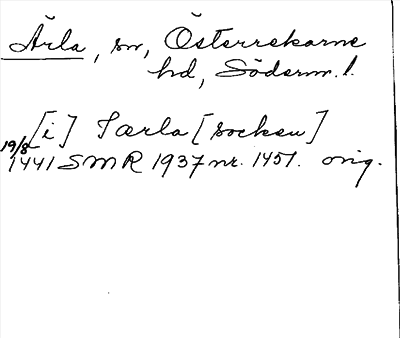 Ärla, sn, Österrekarne
hd, Söderm. l.
[i] Særla [socken]
19/8 1441 SMR 1937 nr. 1451. orig.